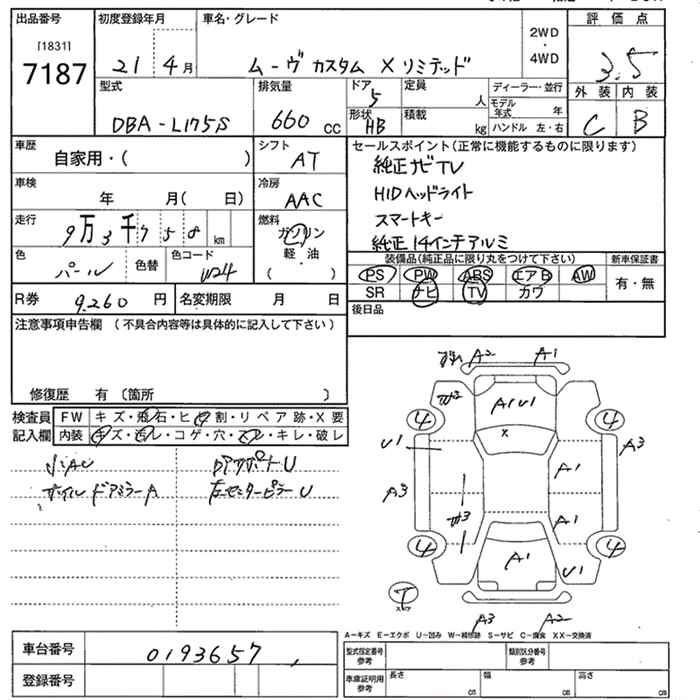 出品番号 初度登録年月 車名・グレード 2WD・4WD 評価点
[1831]
7187 21 4月 ムーヴカスタム Xリミテッド 3.5
型式 排気量 ドア 5 定員 人 ディーラー・並行 外装 内装
DBA-L175S 660 cc 形状 HB 積載 kg モデル年式 年 C B
ハンドル 左・右
車歴 自家用・( ) シフト AT セールスポイント(正常に機能するものに限ります)
純正ナビTV
車検 年 月( 日) 冷房 AAC HIDヘッドライト
スマートキー
走行 9万3千758km 燃料 ガソリン 軽・油 ( ) 純正14インチアルミ
色 パール 色替 色コード W24 装備品(純正品に限り丸をつけて下さい) 新車保証書
PS PW ABS エアB AW 有・無
R券 9,260円 名変期限 月 日 SR ナビ TV カワ
注意事項申告欄 (不具合内容等は具体的に記入して下さい) 後日品
修復歴 有 〔箇所 〕
検査員 FW キズ・飛石・ヒビ割・リペア跡・X要
記入欄 内装 キズ・汚レ・コゲ・穴・スレ・キレ・破レ
小AU Dアポート U
ホイル ドアミラーA 左センターピラーU
A2 A1
W2 A1U1
4 X 4
U1 A3
A3 A1
W3 A1
4 A1 4
U1
T
スペア
A3 A2
A-キズ E-エクボ U-凹み W-補修跡 S-サビ C-腐食 XX-交換済
車台番号 0193657 型式指定番号 参考 類別区分番号 参考
登録番号 車庫証明用 参考 長さ cm 幅 cm 高さ cm